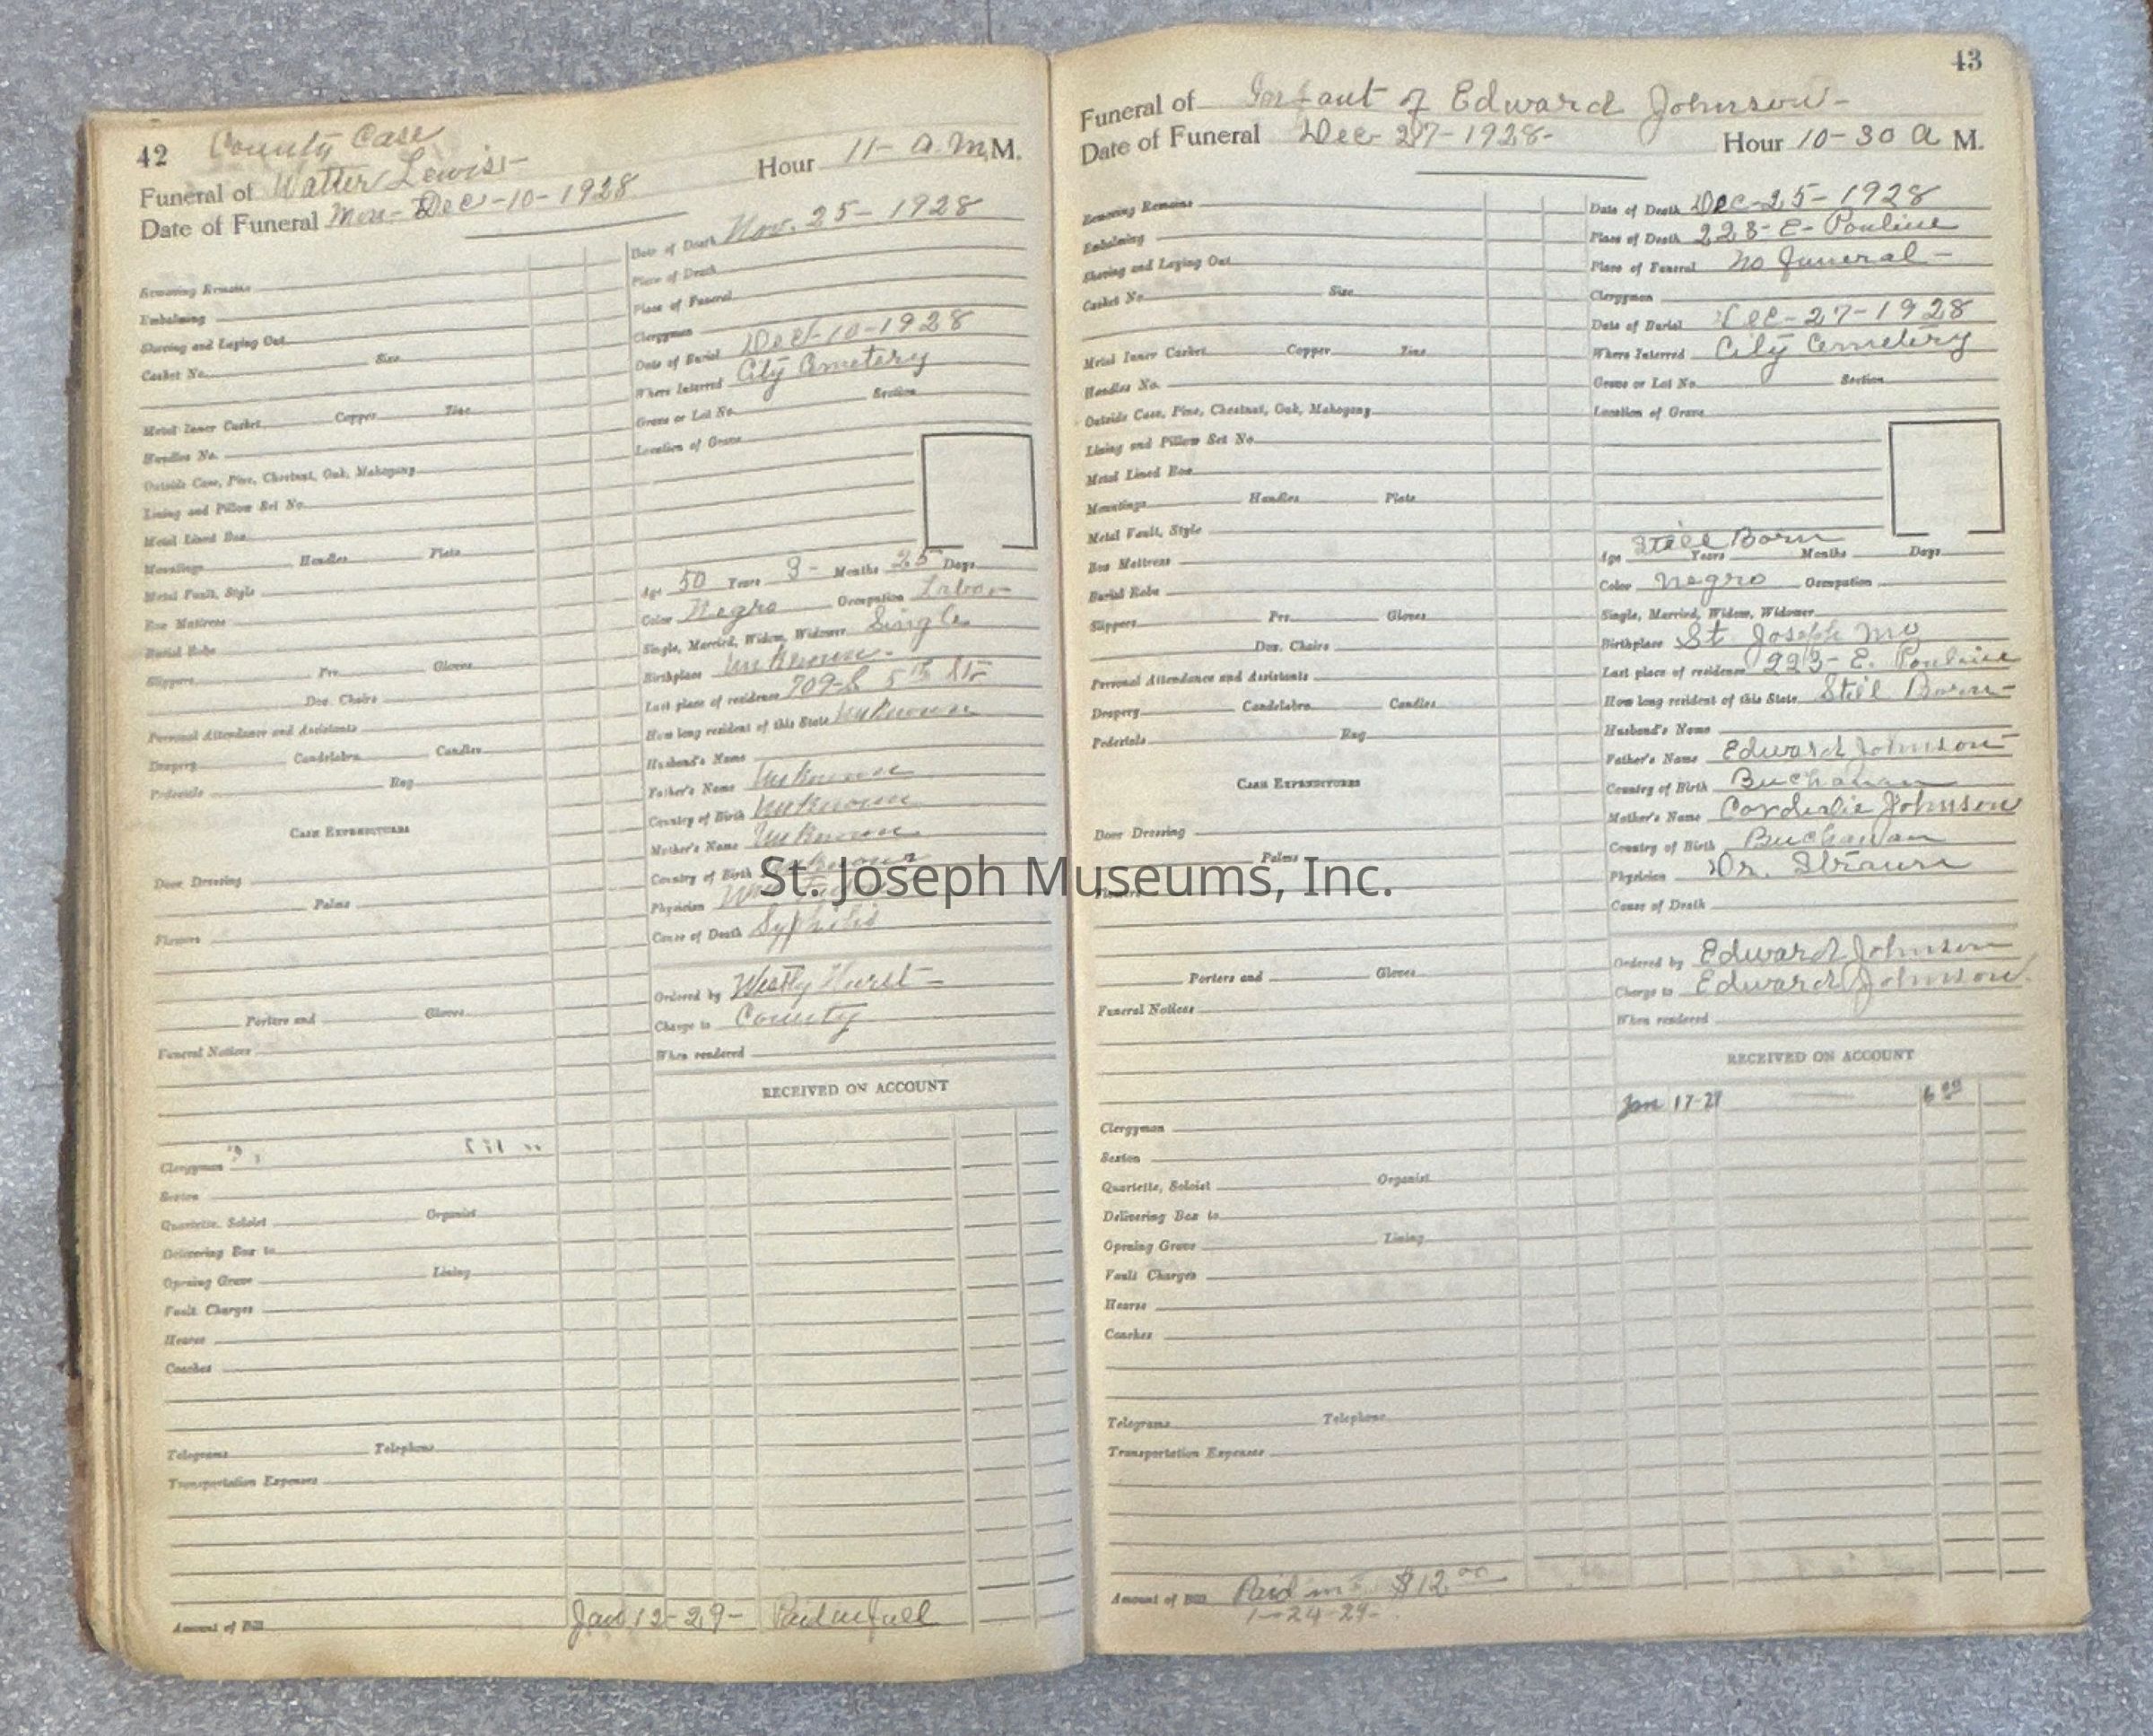 42 County Case
Funeral of Walter Lewis-
Hour 11- a.m. M.
Date of Funeral Mon- Dec-10-1928
Removing Remains
Embalming
Shaving and Laying Out
Casket No. Size
Metal Inner Casket Copper Zinc
Handles No.
Outside Case, Pine, Chestnut, Oak, Mahogany
Lining and Pillow Set No.
Metal Lined Box
Mountings Handles Plate
Metal Vault, Style
Box Mattress
Burial Robe
Slippers Pr. Gloves
Doz. Chairs
Personal Attendance and Assistants
Drapery Candelabra Candles
Pedestals Rug
CASH EXPENDITURES
Door Dressing
Palms
Flowers
Porters and Gloves
Funeral Notices
Clergyman
Sexton
Quartette, Soloist Organist
Delivering Box to
Opening Grave Lining
Vault Charges
Hearse
Coaches
Telegrams Telephone
Transportation Expenses
Amount of Bill Jan 12-29- Paid in full
Date of Death Nov. 25-1928
Place of Death
Place of Funeral
Clergyman
Date of Burial Dec-10-1928
Where Interred City Cemetery
Grave or Lot No. Section
Location of Grave
Age 50 Years 3- Months 25 Days
Color Negro Occupation Labor
Single, Married, Widow, Widower Single
Birthplace Unknown-
Last place of residence 709-S 5th St-
How long resident of this State Unknown
Husband's Name
Father's Name Unknown
Country of Birth Unknown
Mother's Name Unknown
Country of Birth Unknown
Physician
Cause of Death Syphilis
Ordered by Westly Hurst-
Charge to County
When rendered
RECEIVED ON ACCOUNT
43
Funeral of Infant of Edward Johnson-
Date of Funeral Dec-27-1928- Hour 10-30 A M.
Removing Remains
Embalming
Shaving and Laying Out
Casket No. Size
Metal Inner Casket Copper Zinc
Handles No.
Outside Case, Pine, Chestnut, Oak, Mahogany
Lining and Pillow Set No.
Metal Lined Box
Mountings Handles Plate
Metal Vault, Style
Box Mattress
Burial Robe
Slippers Pr. Gloves
Doz. Chairs
Personal Attendance and Assistants
Drapery Candelabra Candles
Pedestals Rug
CASH EXPENDITURES
Door Dressing
Palms
Flowers
Porters and Gloves
Funeral Notices
Clergyman
Sexton
Quartette, Soloist Organist
Delivering Box to
Opening Grave Lining
Vault Charges
Hearse
Coaches
Telegrams Telephone
Transportation Expenses
Amount of Bill Paid $12.00
1-24-29-
Date of Death Dec-25-1928
Place of Death 223-E-Pauline
Place of Funeral No funeral-
Clergyman
Date of Burial Dec-27-1928
Where Interred City Cemetery
Grave or Lot No. Section
Location of Grave
Still Born
Age Years Months Days
Color Negro Occupation
Single, Married, Widow, Widower
Birthplace St. Joseph Mo
Last place of residence 223-E. Pauline
How long resident of this State Still Born-
Husband's Name
Father's Name Edward Johnson
Country of Birth Buchanan
Mother's Name Johnson
Country of Birth Buchanan
Physician Dr.
Cause of Death
Ordered by Edward Johnson
Charge to Edward Johnson
When rendered
RECEIVED ON ACCOUNT
Jan 17-29 6 00
St. Joseph Museums, Inc.